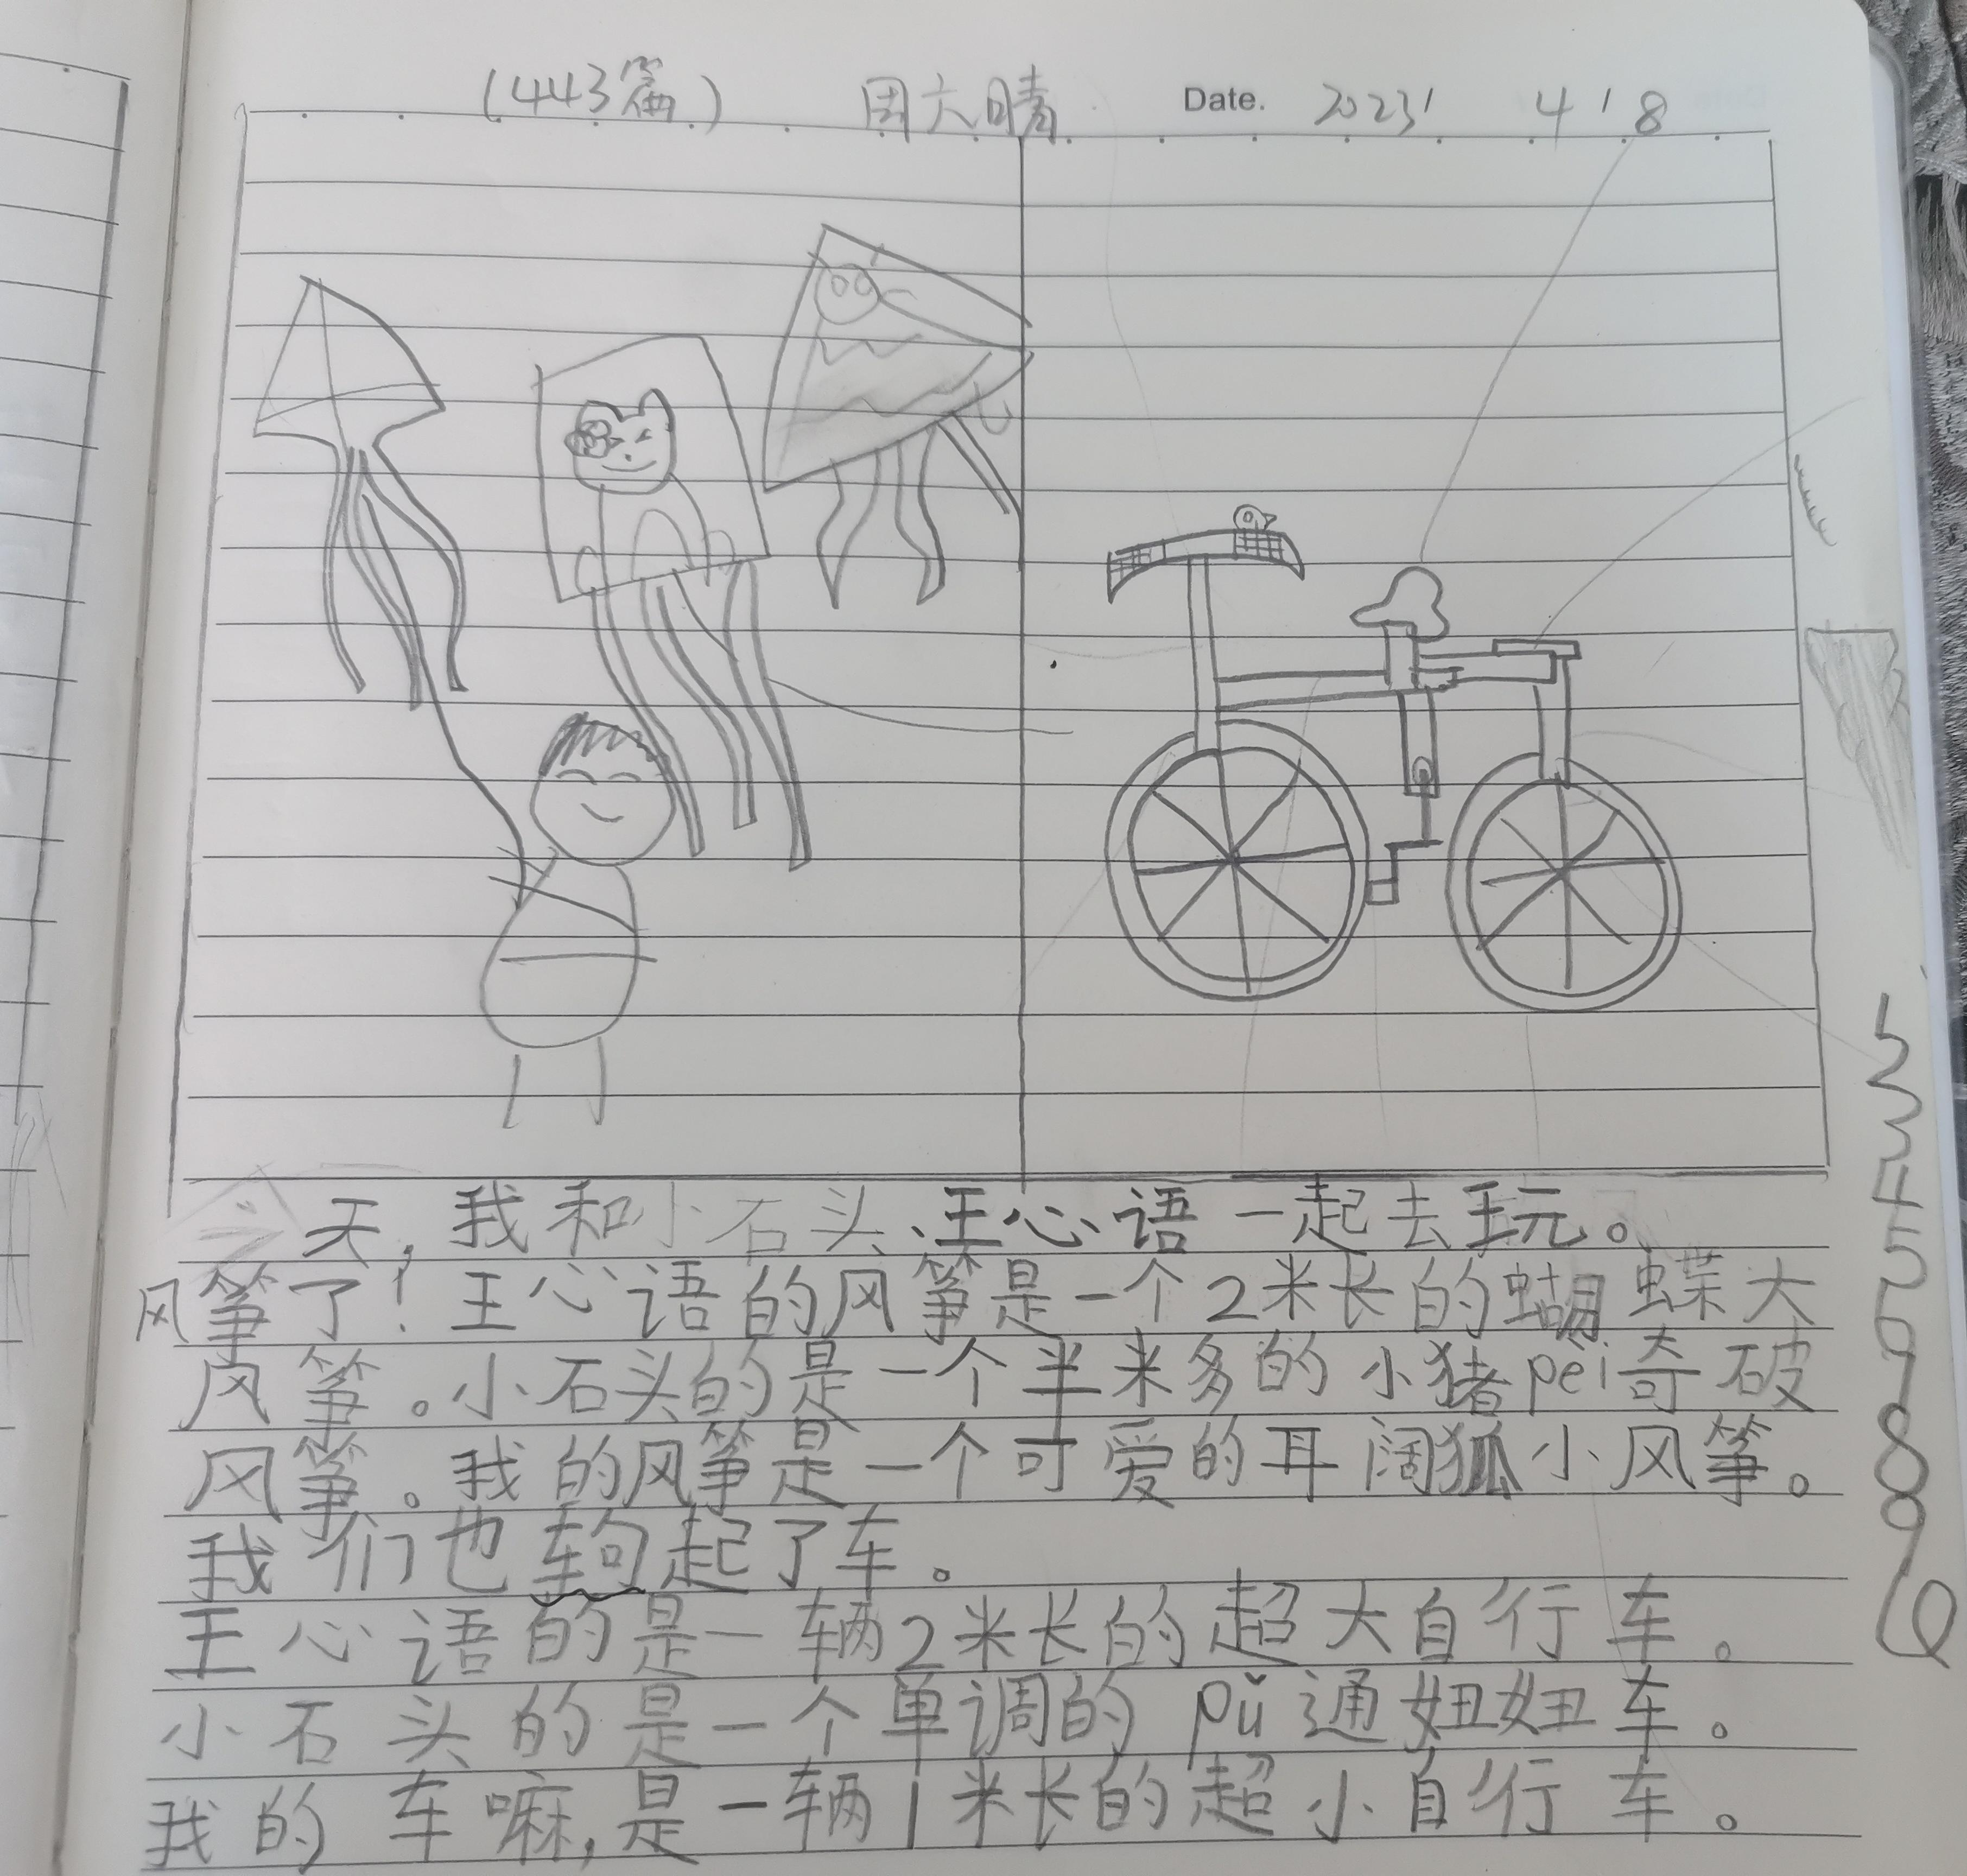 (443篇) 周六晴 Date. 2023' 4'8
今天,我和小石头、王心语一起去玩。
风筝了!王心语的风筝是一个2米长的蝴蝶大
风筝。小石头的是一个半米多的小猪pèi奇破
风筝。我的风筝是一个可爱的耳阔狐小风筝。
我们也起了车。
王心语的是一辆2米长的超大自行车。
小石头的是一个单调的pǔ通妞妞车。
我的车嘛,是一辆1米长的超小自行车。
1
2
3
4
5
6
7
8
9
10